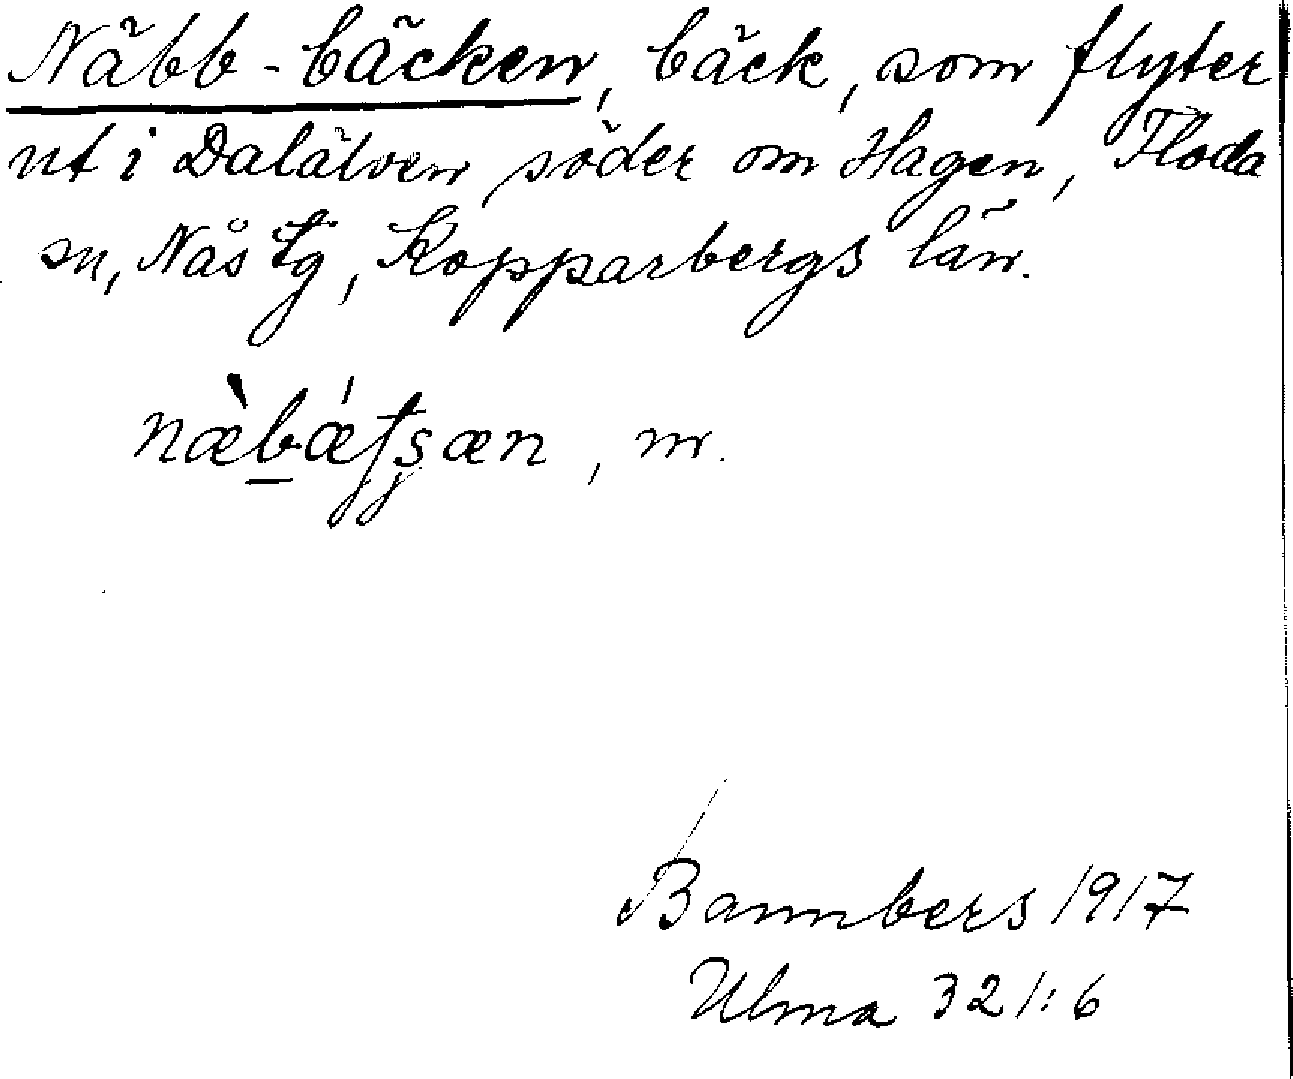 Näbb-bäcken, bäck, som flyter
ut i Dalälven söder om Hagen, Floda
sn, Nås tg, Kopparbergs län.
, m.
Bannbers 1917
Ulma 321:6